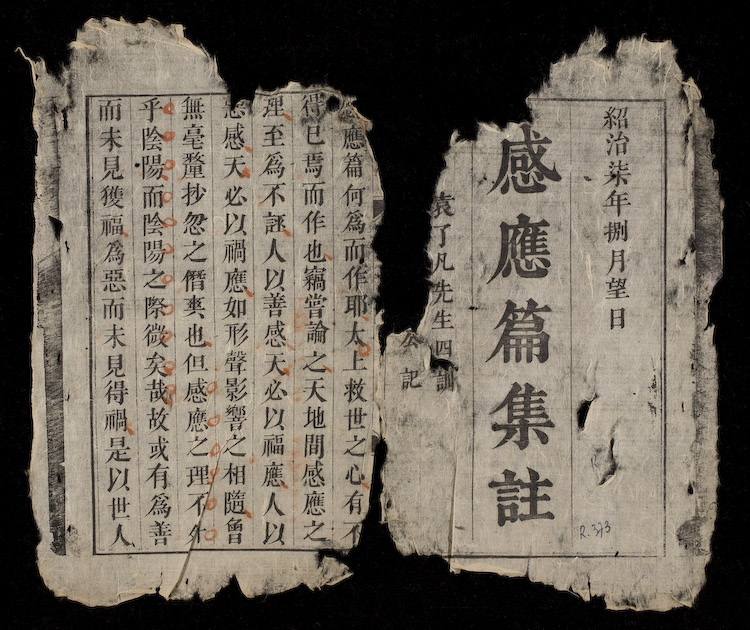 紹治柒年捌月望日
感應篇集註
袁了凡先生四訓
公記
R.373
應篇何為而作耶太上救世之心有不
得已焉而作也竊嘗論之天地間感應之
理至為不誣人以善感天必以福應人以
惡感天必以禍應如形聲影響之相隨曾
無毫釐抄忽之僭爽也但感應之理不外
乎陰陽而陰陽之際微矣哉故或有為善
而未見獲福為惡而未見得禍是以世人